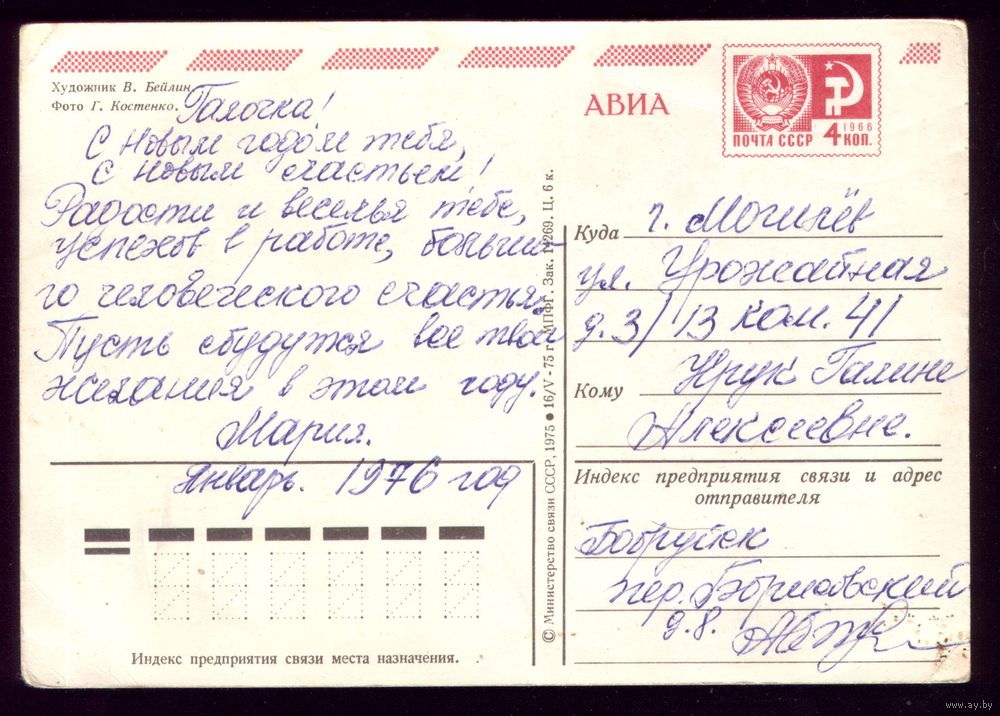 Художник В. Бейлин
Фото Г. Костенко.
Галочка!
С Новым годом тебя,
с новым счастьем!
Радости и веселья тебе,
успехов в работе, больше-
го человеческого счастья.
Пусть сбудутся все твои
желания в этом году.
Мария.
Январь. 1976 год
Индекс предприятия связи места назначения.
© Министерство связи СССР, 1975 ● 16/V - 75 г. МПФГ. Зак. 14269. Ц. 6 к.
АВИА
ПОЧТА СССР
1966
4 КОП.
Куда г. Могилёв
ул. Урожайная
д. 3/13 ком. 41
Кому Крук Галине
Алексеевне.
Индекс предприятия связи и адрес
отправителя
Бобруйск
пер.
д. 8.
www.ay.by